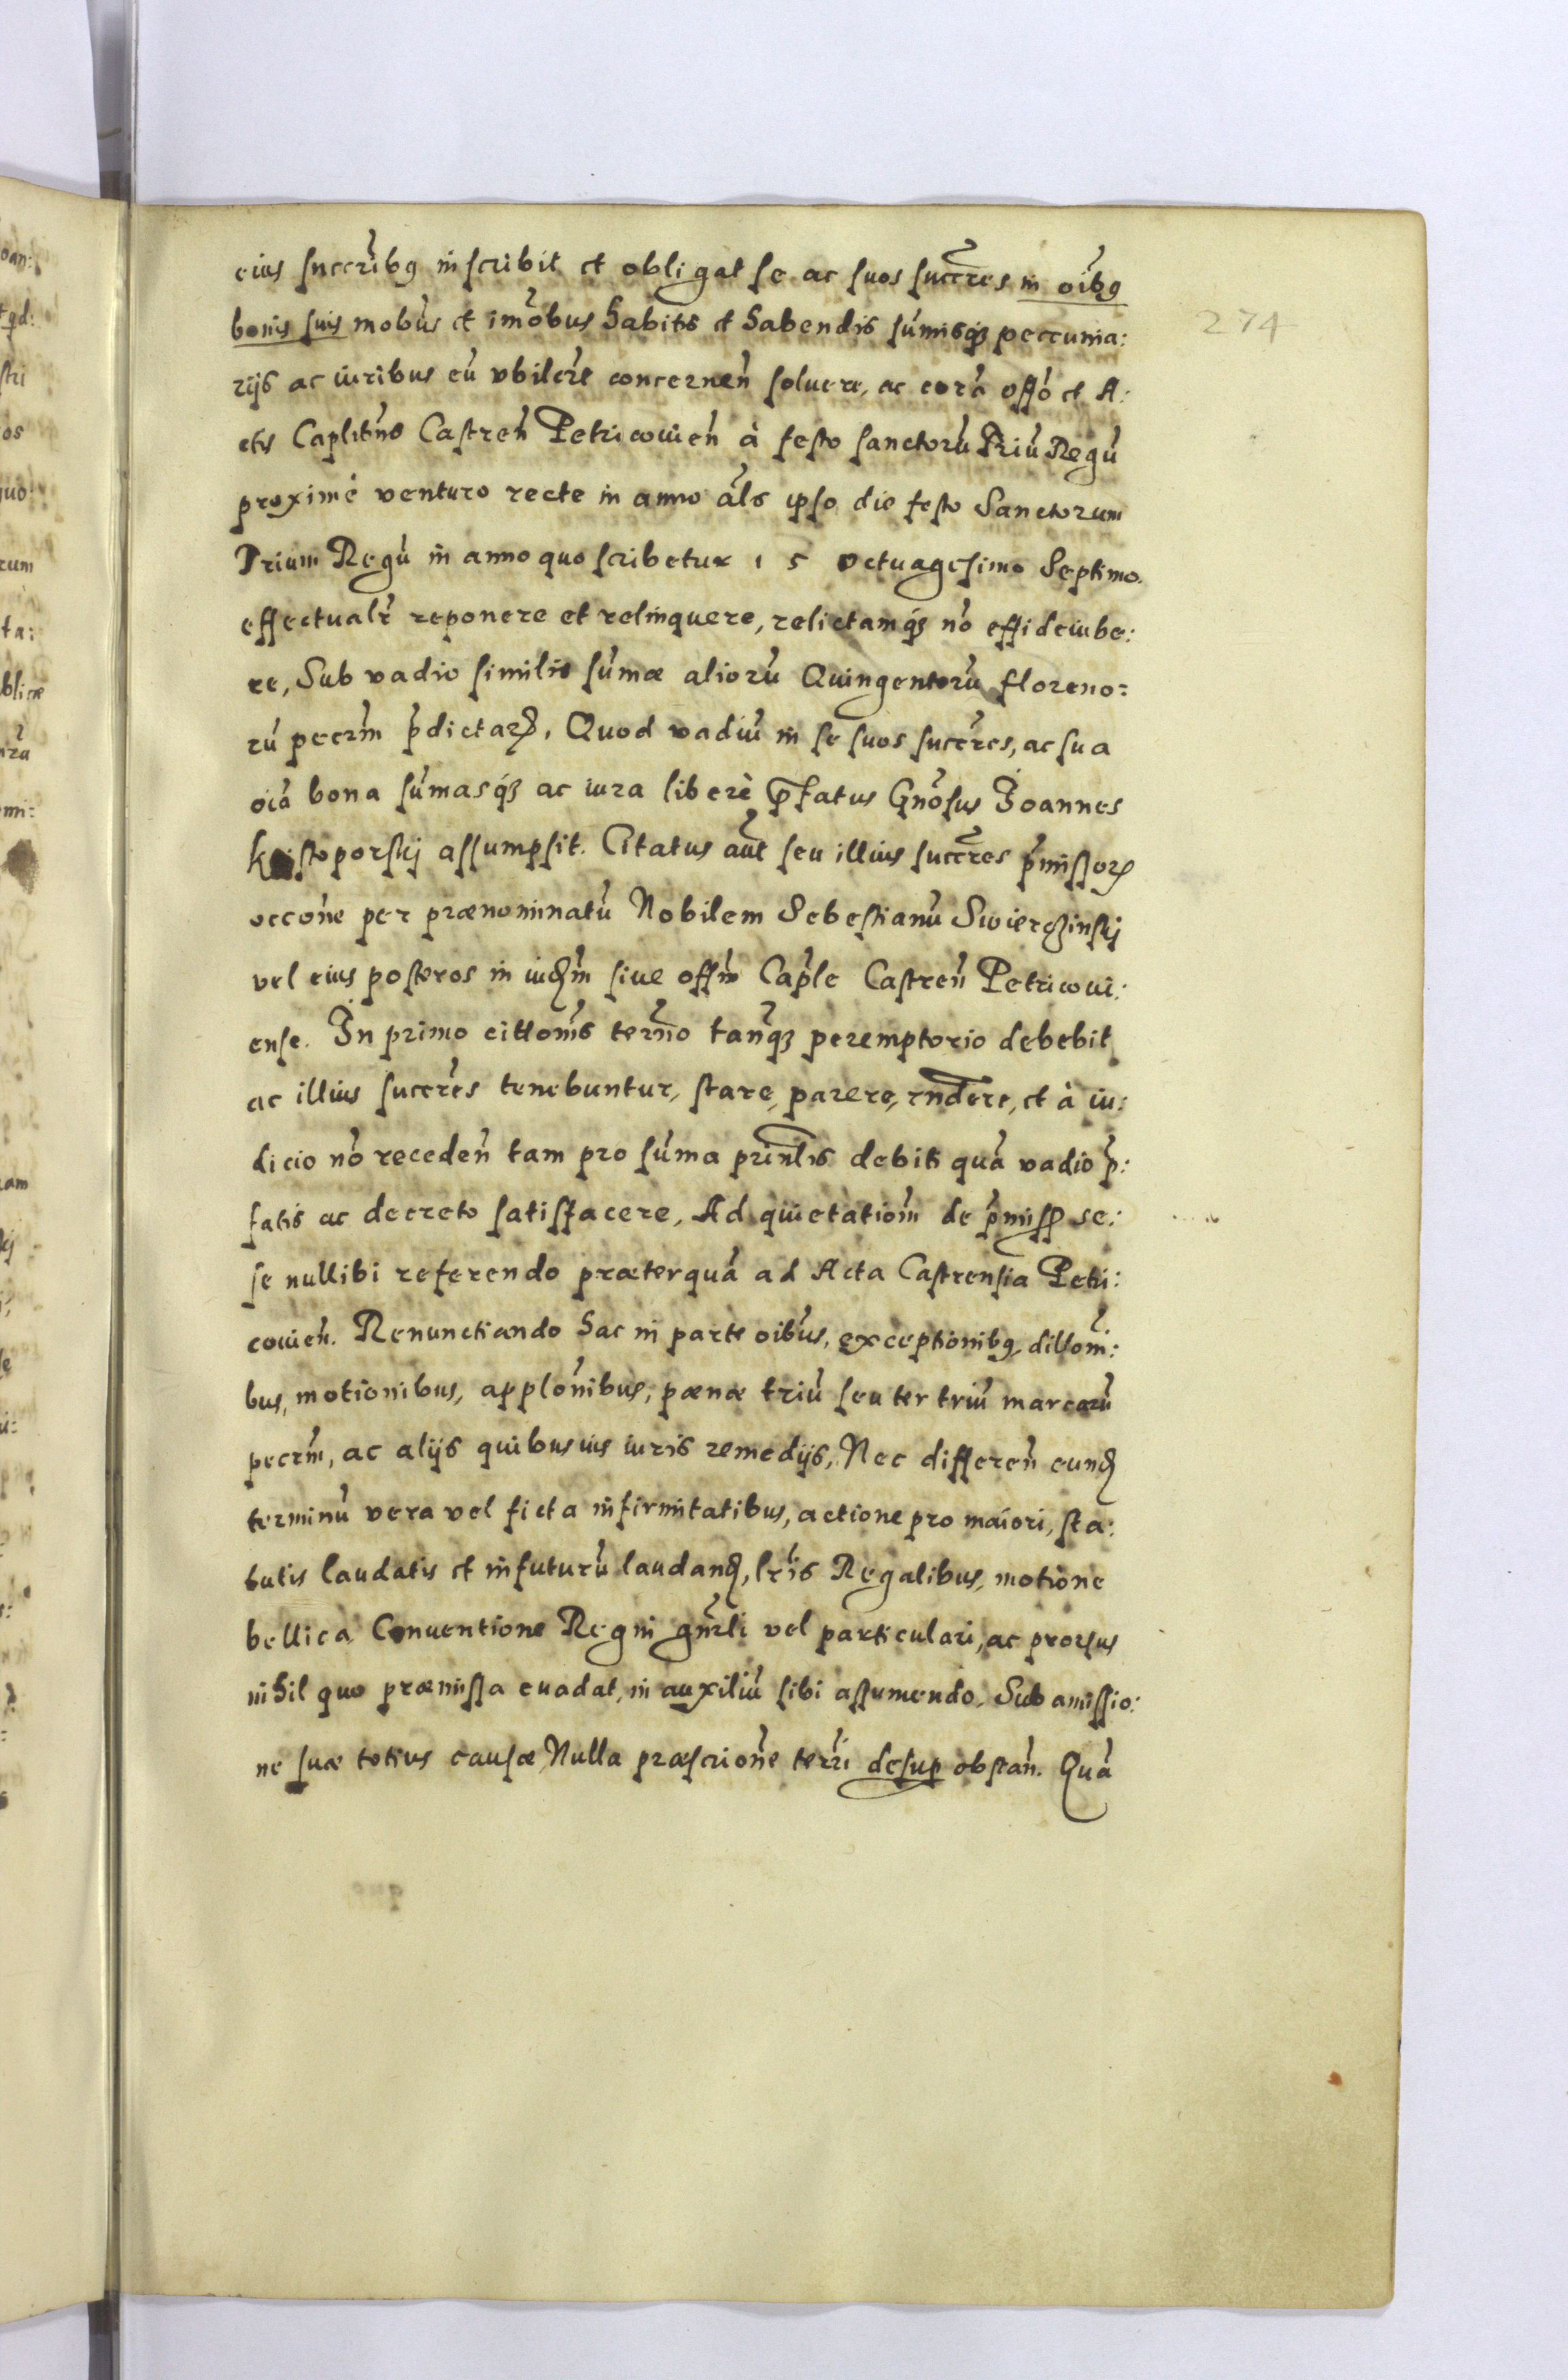 eius succribꝗ inscribit et obligat se ac suos succres in oibꝗ
bonis suis mobus et imobus habitis et habendis sumisqȝ peccunia:
274
rijs ac iuribus eu vbilert concernen soluere, ac cora offo et A:
ctis Caplitns Castren Petricouien à festo sanctoru Triu Regu
proximè venturo recte in anno als ipso die festo Sanctorum
Trium Regu in anno quo scribetur 1 5 octuagesimo Septimo.
effectualr reponere et relinquere, relictamqȝ no effideiube:
re, Sub vadio similis sumæ alioru Quingentoru floreno:
ru pecrm pdictarꝝ. Quod vadiu in se suos succres, ac sua
oia bona sumasqȝ ac iura liberè pfatus Gnosus Joannes
stoporskij assumpsit. Citatus aut seu illius succres pmissorꝝ
occone per prænominatu Nobilem Sebestianu Swierczinskij
vel eius posteros in iudm siue offm Caple Castren Petricoui:
ense. In primo cittonis termno tanqȝ peremptorio debebit
ac illius succres tenebuntur, stare, parere, rndere, et à iu:
dicio no receden tam pro suma prinlis debiti qua vadio p:
fatis ac decreto satisfacere, Ad quietatiom de pmiss se:
se nullibi referendo præterqua ad Acta Castrensia Petri:
couien. Renunctiando hac in parte oibus, exceptionibꝗ dillom:
bus, motionibus, applonibus, pænæ triu seu ter triu marcaru
pecrm, ac alijs quibusuis iuris remedijs, Nec differen eund
terminu vera vel ficta infirmitatibus, actione pro maiori, sta:
tutis laudatis et infuturu laudand, lris Regalibus, motione
bellica Conuentione Regni gnrli vel particulari, ac prorsus
nihil quo præmissa euadat, in auxiliu sibi assumendo. Sub amissio:
ne suæ totius causæ, Nulla præscrione terri desup obstan. Qua